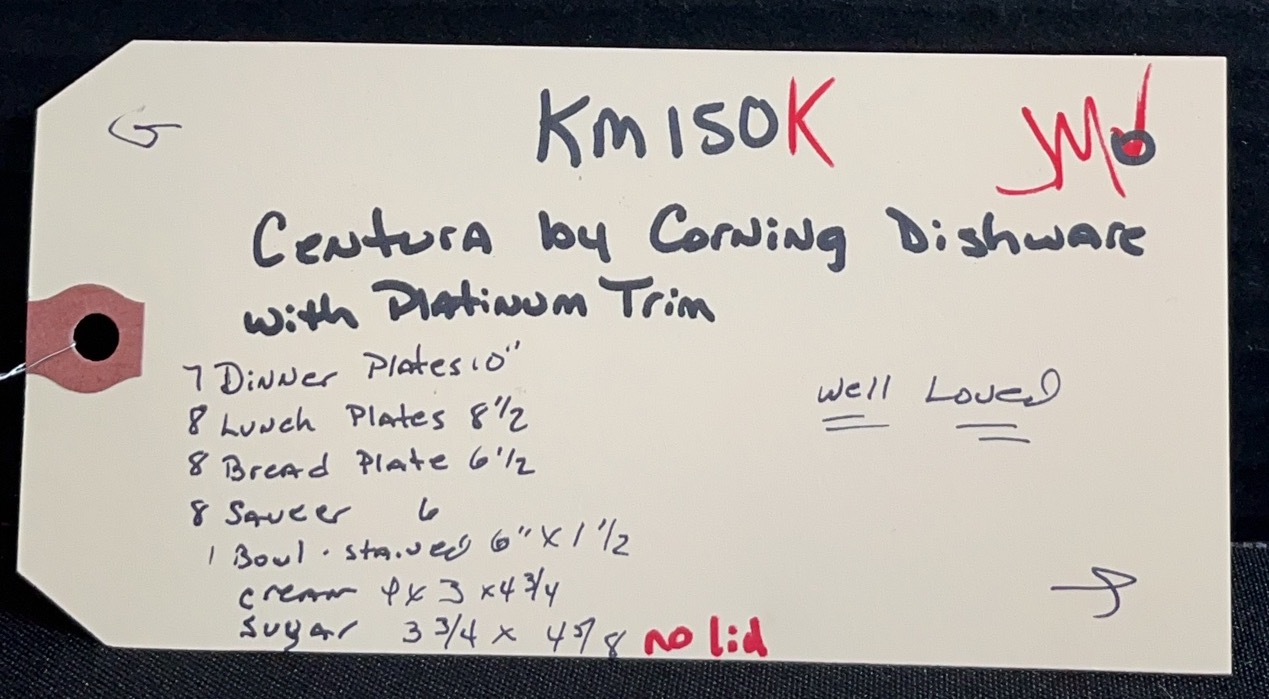 KM150K
Centura by Corning Dishware
with Platinum Trim
7 Dinner Plates 10"
8 Lunch Plates 8 1/2
8 Bread Plate 6 1/2
8 Saucer 6
Well Loved
1 Bowl . stained 6" x 1 1/2
cream 4 x 3 x 4 3/4
Sugar 3 3/4 x 4 5/8 no lid